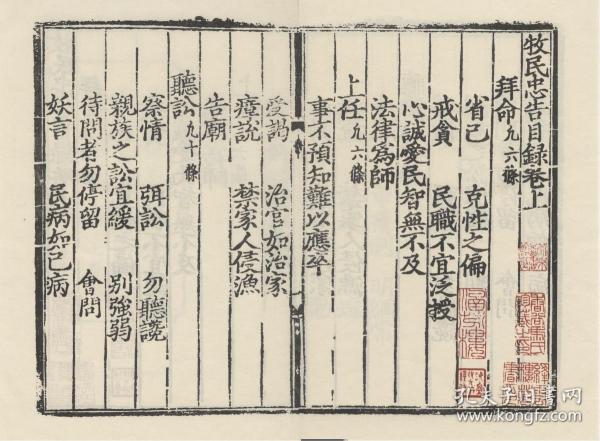 牧民忠告目録卷上
拜命 凡六條
省己 克性之偏
戒貪 民職不宜泛授
心誠愛民智無不及
法律爲師
上任 凡六條
事不預知難以應卒
受謁 治官如治家
瘴說 禁家人侵漁
告廟
聽訟 凡十條
察情 弭訟 勿聽讒
親族之訟宜緩 別強弱
待問者勿停留 會問
妖言 民病如己病
涵芬樓
孔夫子旧书网
www.kongfz.com